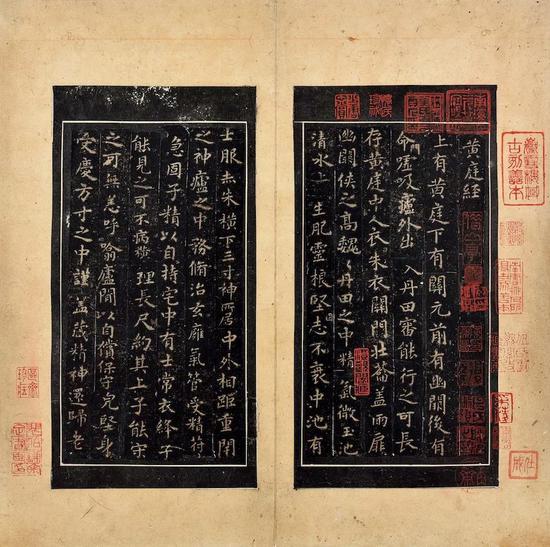 黄庭經
上有黄庭下有關元前有幽關後有
命門嘘吸廬外出入丹田審能行之可長
存黄庭中人衣朱衣關門壯蘥蓋兩扉
幽闕俠之高魏魏丹田之中精氣微玉池
清水上生肥靈根堅志不衰中池有
士服赤朱横下三寸神所居中外相距重閉
之神廬之中務脩治玄廱氣管受精符
急固子精以自持宅中有士常衣絳子
能見之可不病横理長尺約其上子能守
之可無恙呼噏廬間以自償保守皃堅身
受慶方寸之中謹蓋藏精神還歸老